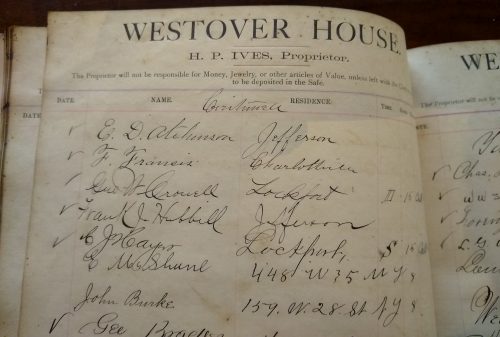 WESTOVER HOUSE.
H. P. IVES, Proprietor.
The Proprietor will not be responsible for Money, Jewelry, or other articles of Value, unless left with the
to be deposited in the Safe.
DATE. NAME. RESIDENCE. TIME.
Continued
E. D. Atchinson Jefferson
F. Fransis Charlottville
Geo W. Crowell Lockport
Frank J Hubbill Jefferson
C J Lockport,
E McShane 448 W 35 N Y 8
John Burke 159. W. 28 St N Y 8
Geo
WES
DATE.
Chas.